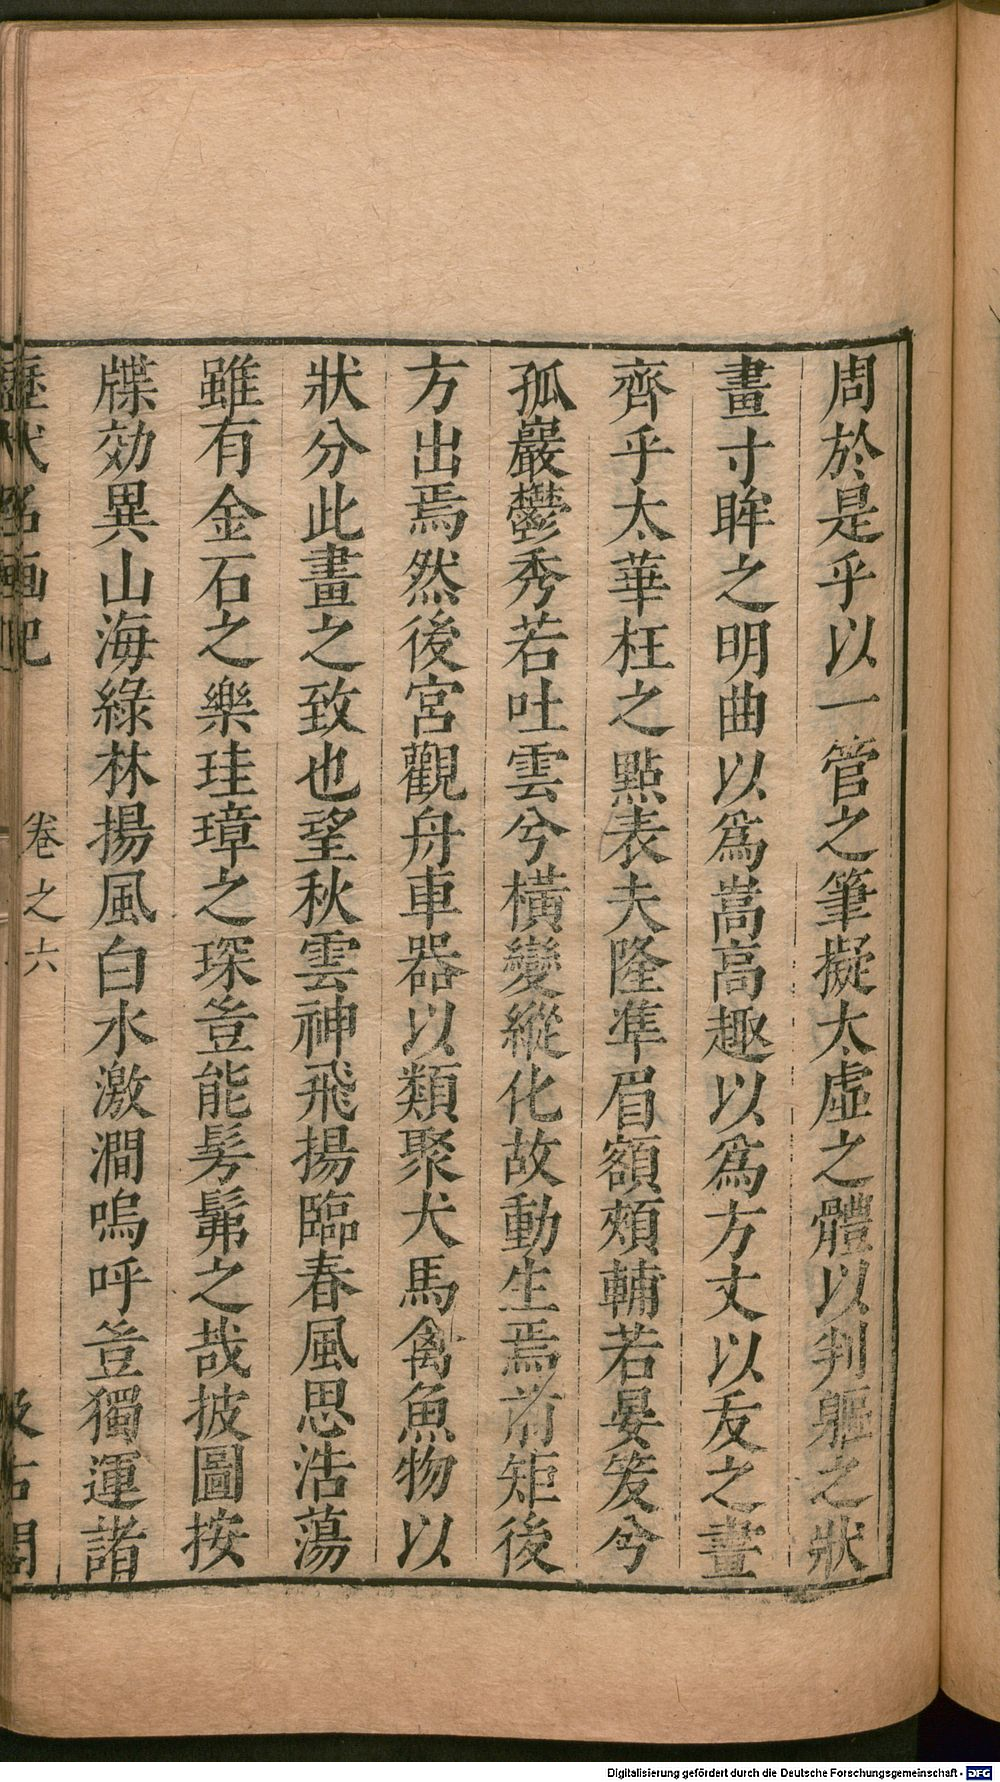 周於是乎以一管之筆擬太虛之體以判軀之狀
畫寸眸之明曲以爲嵩高趣以爲方丈以叐之畫
齊乎太華枉之點表夫隆凖眉額頰輔若晏笑兮
孤巖鬱秀若吐雲兮橫變縱化故動生焉前矩後
方出焉然後宮觀舟車器以類聚犬馬禽魚物以
狀分此畫之致也望秋雲神飛揚臨春風思浩蕩
雖有金石之樂珪璋之琛豈能髣髴之哉披圖按
牒効異山海綠林揚風白水激澗嗚呼豈獨運諸
歷代名画記 卷之六 汲古閣
Digitalisierung gefördert durch die Deutsche Forschungsgemeinschaft - DFG